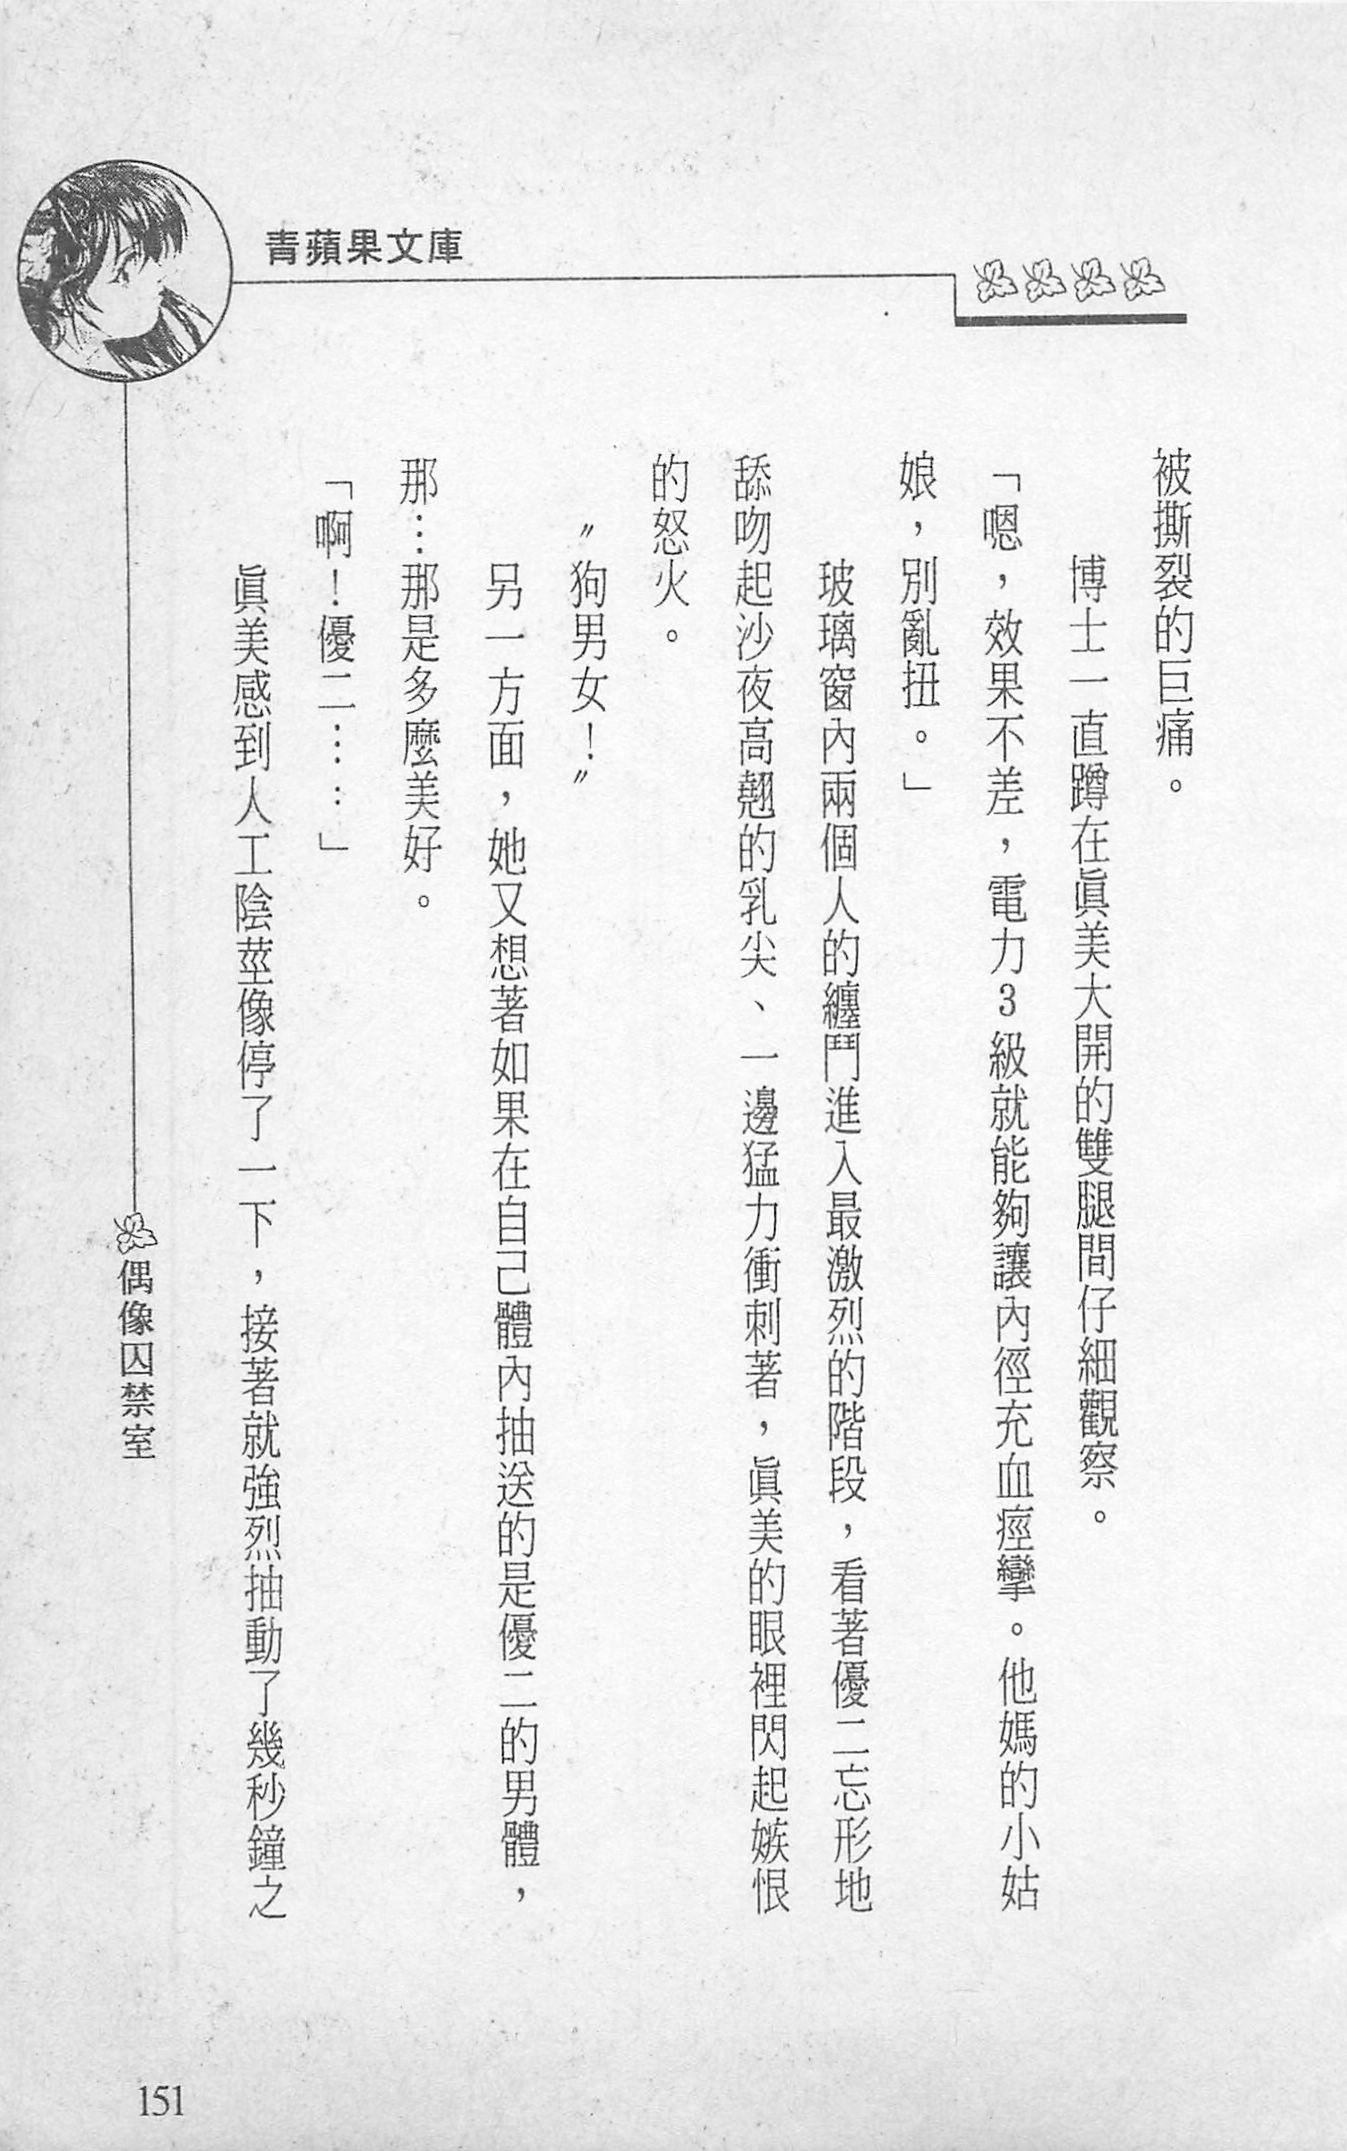 青蘋果文庫
被撕裂的巨痛。
博士一直蹲在眞美大開的雙腿間仔細觀察。
「嗯，效果不差，電力3級就能夠讓內徑充血痙攣。他媽的小姑
娘，別亂扭。」
玻璃窗內兩個人的纏鬥進入最激烈的階段，看著優二忘形地
舔吻起沙夜高翹的乳尖、一邊猛力衝刺著，眞美的眼裡閃起嫉恨
的怒火。
〝狗男女！〞
另一方面，她又想著如果在自己體內抽送的是優二的男體，
那…那是多麼美好。
「啊！優二……」
眞美感到人工陰莖像停了一下，接著就強烈抽動了幾秒鐘之
偶像囚禁室
151